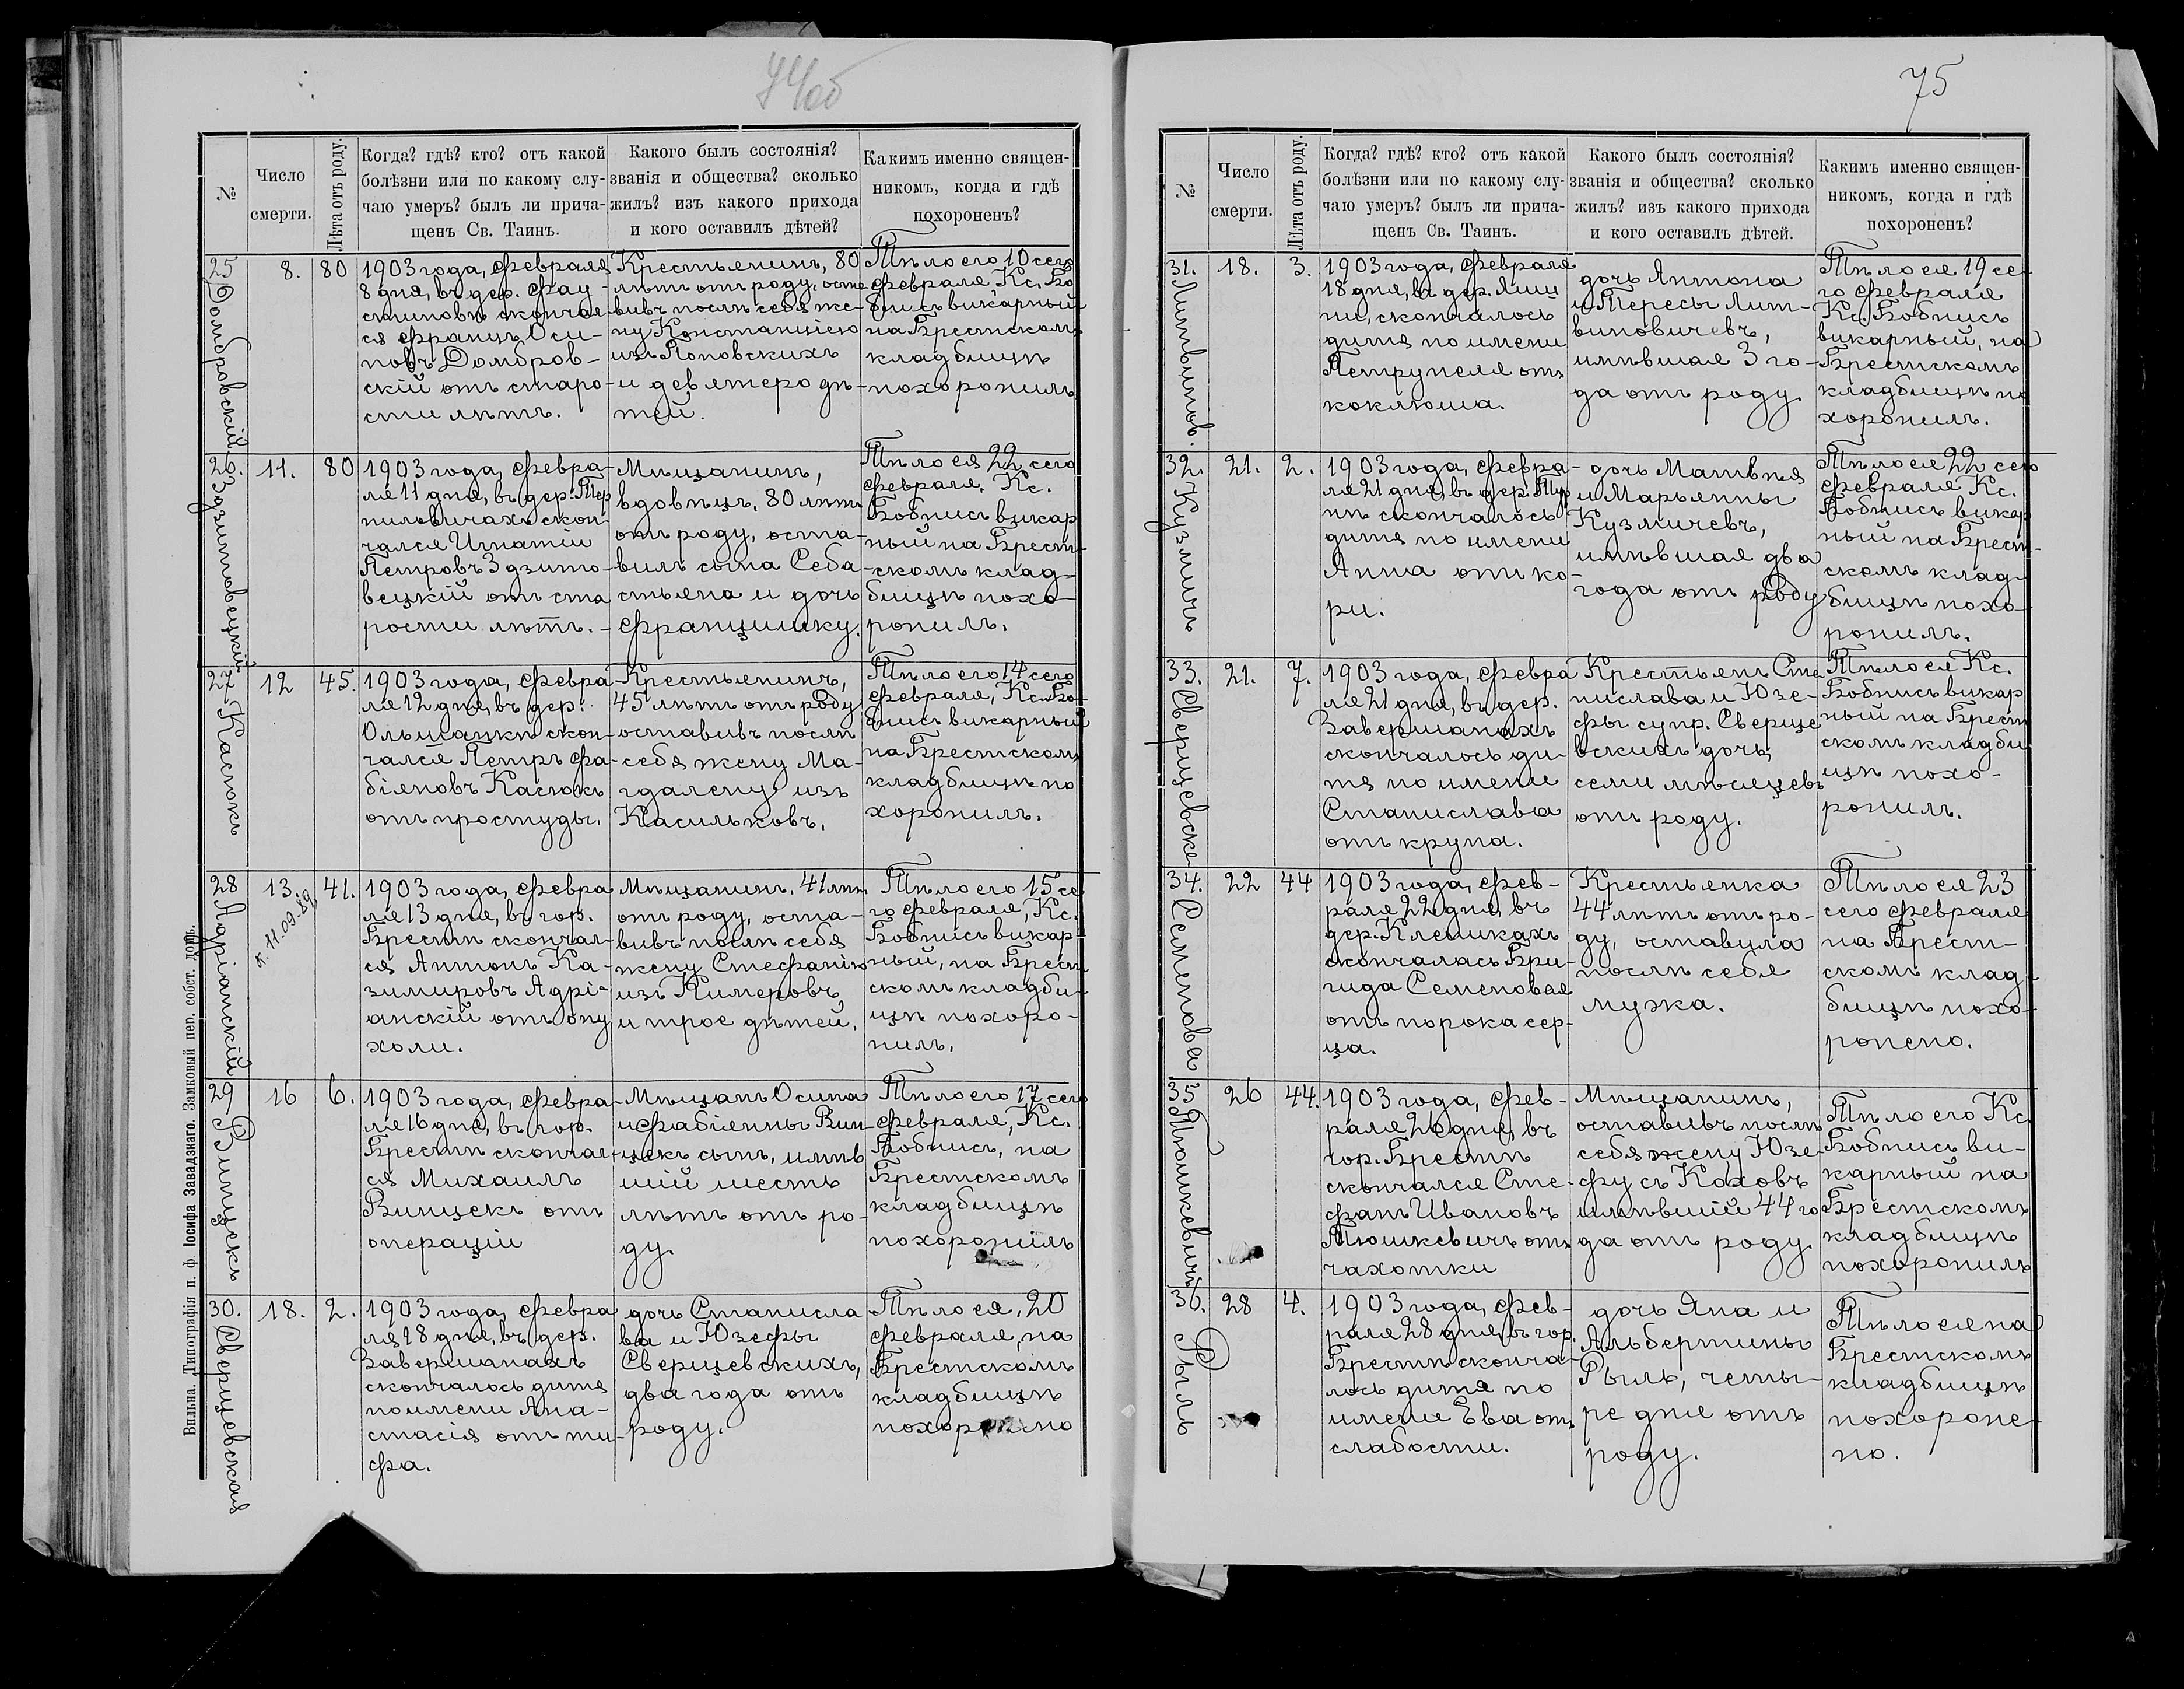 74об
№
Число
смерти.
Лѣта отъ роду.
Когда? гдѣ? кто? отъ какой
болѣзни или по какому слу-
чаю умеръ? былъ ли прича-
щенъ Св. Таинъ.
Какого былъ состоянія?
званія и общества? сколько
жилъ? изъ какого прихода
и кого оставилъ дѣтей?
Какимъ именно священ-
никомъ, когда и гдѣ
похороненъ?
25
Домбровскій.
8.
80
1903 года, февраля
8 дня, въ дер. Фау-
стиновѣ скончал
ся Францъ Оси-
повъ Домбров-
скій отъ старо-
сти лѣтъ.
Крестьянинъ, 80
лѣтъ отъ роду, оста
вивъ послѣ себя же-
ну Констанцію
изъ Поповскихъ
и девятеро дѣ-
тей.
Тѣло его 10 сего
февраля Кс. Бо
бнисъ викарный
на Брестскомъ
кладбищѣ
похоронилъ
26.
Здзитовецкій
11.
80
1903 года, февра-
ля 11 дня, въ дер. Тер
пиловичахъ скон-
чался Игнатій
Петровъ Здзито-
вецкій отъ ста
рости лѣтъ.
Мѣщанинъ,
вдовецъ, 80 лѣтъ
отъ роду, оста-
вилъ сына Себа
стьяна и дочь
Францишку.
Тѣло ея 22 сего
февраля, Кс.
Бобнисъ викар
ный на Брест-
скомъ клад-
бищѣ похо-
ронилъ.
27
Касюкъ
12
45.
1903 года, февра-
ля 12 дня, въ дер.
Ольшанкѣ скон-
чался Петръ Фа-
біяновъ Касюкъ
отъ простуды.
Крестьянинъ,
45 лѣтъ отъ роду
оставивъ послѣ
себя жену Ма-
гдалену изъ
Касильковъ.
Тѣло его 14 сего
февраля, Кс. Бо-
бнисъ викарный
на Брестскомъ
кладбищѣ по
хоронилъ.
28
Адріанскій
13.
п. 11.09.89
41.
1903 года, февра
ля 13 дня, въ гор.
Брестѣ скончал-
ся Антонъ Ка-
зимировъ Адрі-
анскій отъ опу
холи.
Мѣщанинъ, 41 лѣтъ
отъ роду, оста-
вивъ послѣ себя
жену Стефанію
изъ Кимеровъ,
и трое дѣтей.
Тѣло его 15 се
го февраля, Кс.
Бобнисъ викар-
ный, на Брест
скомъ кладби-
щѣ похоро-
нилъ.
29
Винцекъ
16
6.
1903 года, февра-
ля 16 дня, въ гор.
Брестѣ скончал-
ся Михаилъ
Винцекъ отъ
операціи
Мѣщанъ Осипа
и Фабіенны Вин-
цекъ сынъ, имѣв
шій шесть
лѣтъ отъ ро-
ду.
Тѣло его 17 сего
февраля, Кс.
Бобнисъ, на
Брестскомъ
кладбищѣ
похоронилъ
30.
Сверщевская
18.
2.
1903 года, февра
ля 18 дня, въ дер.
Завершанахъ
скончалось дитя
по имени Ана-
стасія отъ ти-
фа.
дочь Станисла
ва и Юзефы
Сверщевскихъ,
два года отъ
роду.
Тѣло ея, 20
февраля, на
Брестскомъ
кладбищѣ
похоронено
Вильна. Типографія п. ф Іосифа Завадзкаго. Замковый пер. собст. домъ.
75
№
Число
смерти.
Лѣта отъ роду.
Когда? гдѣ? кто? отъ какой
болѣзни или по какому слу-
чаю умеръ? былъ ли прича-
щенъ Св. Таинъ.
Какого былъ состоянія?
званія и общества? сколько
жилъ? изъ какого прихода
и кого оставилъ дѣтей.
Какимъ именно священ-
никомъ, когда и гдѣ
похороненъ?
31.
Литвинов.
18.
3.
1903 года, февраля
18 дня, въ дер.
скончалось
дитя по имени
Петрунеля отъ
коклюша.
дочь Антона
и Тересы Лит-
виновичевъ,
имѣвшая 3 го-
да отъ роду.
Тѣло ея 19 се-
го февраля
Кс. Бобнисъ
викарный, на
Брестскомъ
кладбищѣ по
хоронилъ.
32.
Кузмичъ
21.
2.
1903 года, февра-
ля 21 дня, въ дер. Тур
нѣ скончалось
дитя по имени
Анна отъ ко-
ри.
дочь Матвѣя
и Марьянны
Кузмичевъ,
имѣвшая два
года отъ роду
Тѣло ея 22 сего
февраля Кс.
Бобнисъ викар
ный на Брест-
скомъ клад-
бищѣ похо-
ронилъ.
33.
Сверщевске
21.
7.
1903 года, февра
ля 21 дня, въ дер.
Завершанахъ
скончалось ди-
тя по имени
Станислава
отъ крупа.
Крестьянъ Ста
нислава и Юзе-
фы супр. Сверще
вскихъ дочь,
семи мѣсяцевъ
отъ роду.
Тѣло ея Кс.
Бобнисъ викар
ный на Брест
скомъ кладби
щѣ похо-
ронилъ.
34.
Семенова
22
44
1903 года, фев-
раля 22 дня, въ
дер. Клейникахъ
скончалась Бри-
гида Семеновая
отъ порока сер-
ца.
Крестьянка
44 лѣтъ отъ ро-
ду, оставула
послѣ себя
мужа.
Тѣло ея 23
сего февраля
на Брест-
скомъ клад-
бищѣ похо-
ронено.
35
Тюшкевичъ
26
44.
1903 года, фев-
раля 26 дня, въ
гор. Брестѣ
скончался Сте-
фанъ Ивановъ
Тюшкевичъ отъ
чахотки
Мѣщанинъ,
оставивъ послѣ
себя жену Юзе-
фу съ Коховъ
имѣвшій 44 го
да отъ роду
Тѣло его Кс.
Бобнисъ ви-
карный на
Брестскомъ
кладбищѣ
похоронилъ
36.
Рыль
28
4.
1903 года, фев-
раля 28 дня, въ гор.
Брестѣ сконча-
лось дитя по
имени Ева отъ
слабости.
дочь Яна и
Альбертины
Рыль, четы-
ре дня отъ
роду.
Тѣло ея на
Брестскомъ
кладбищѣ
похороне-
но.